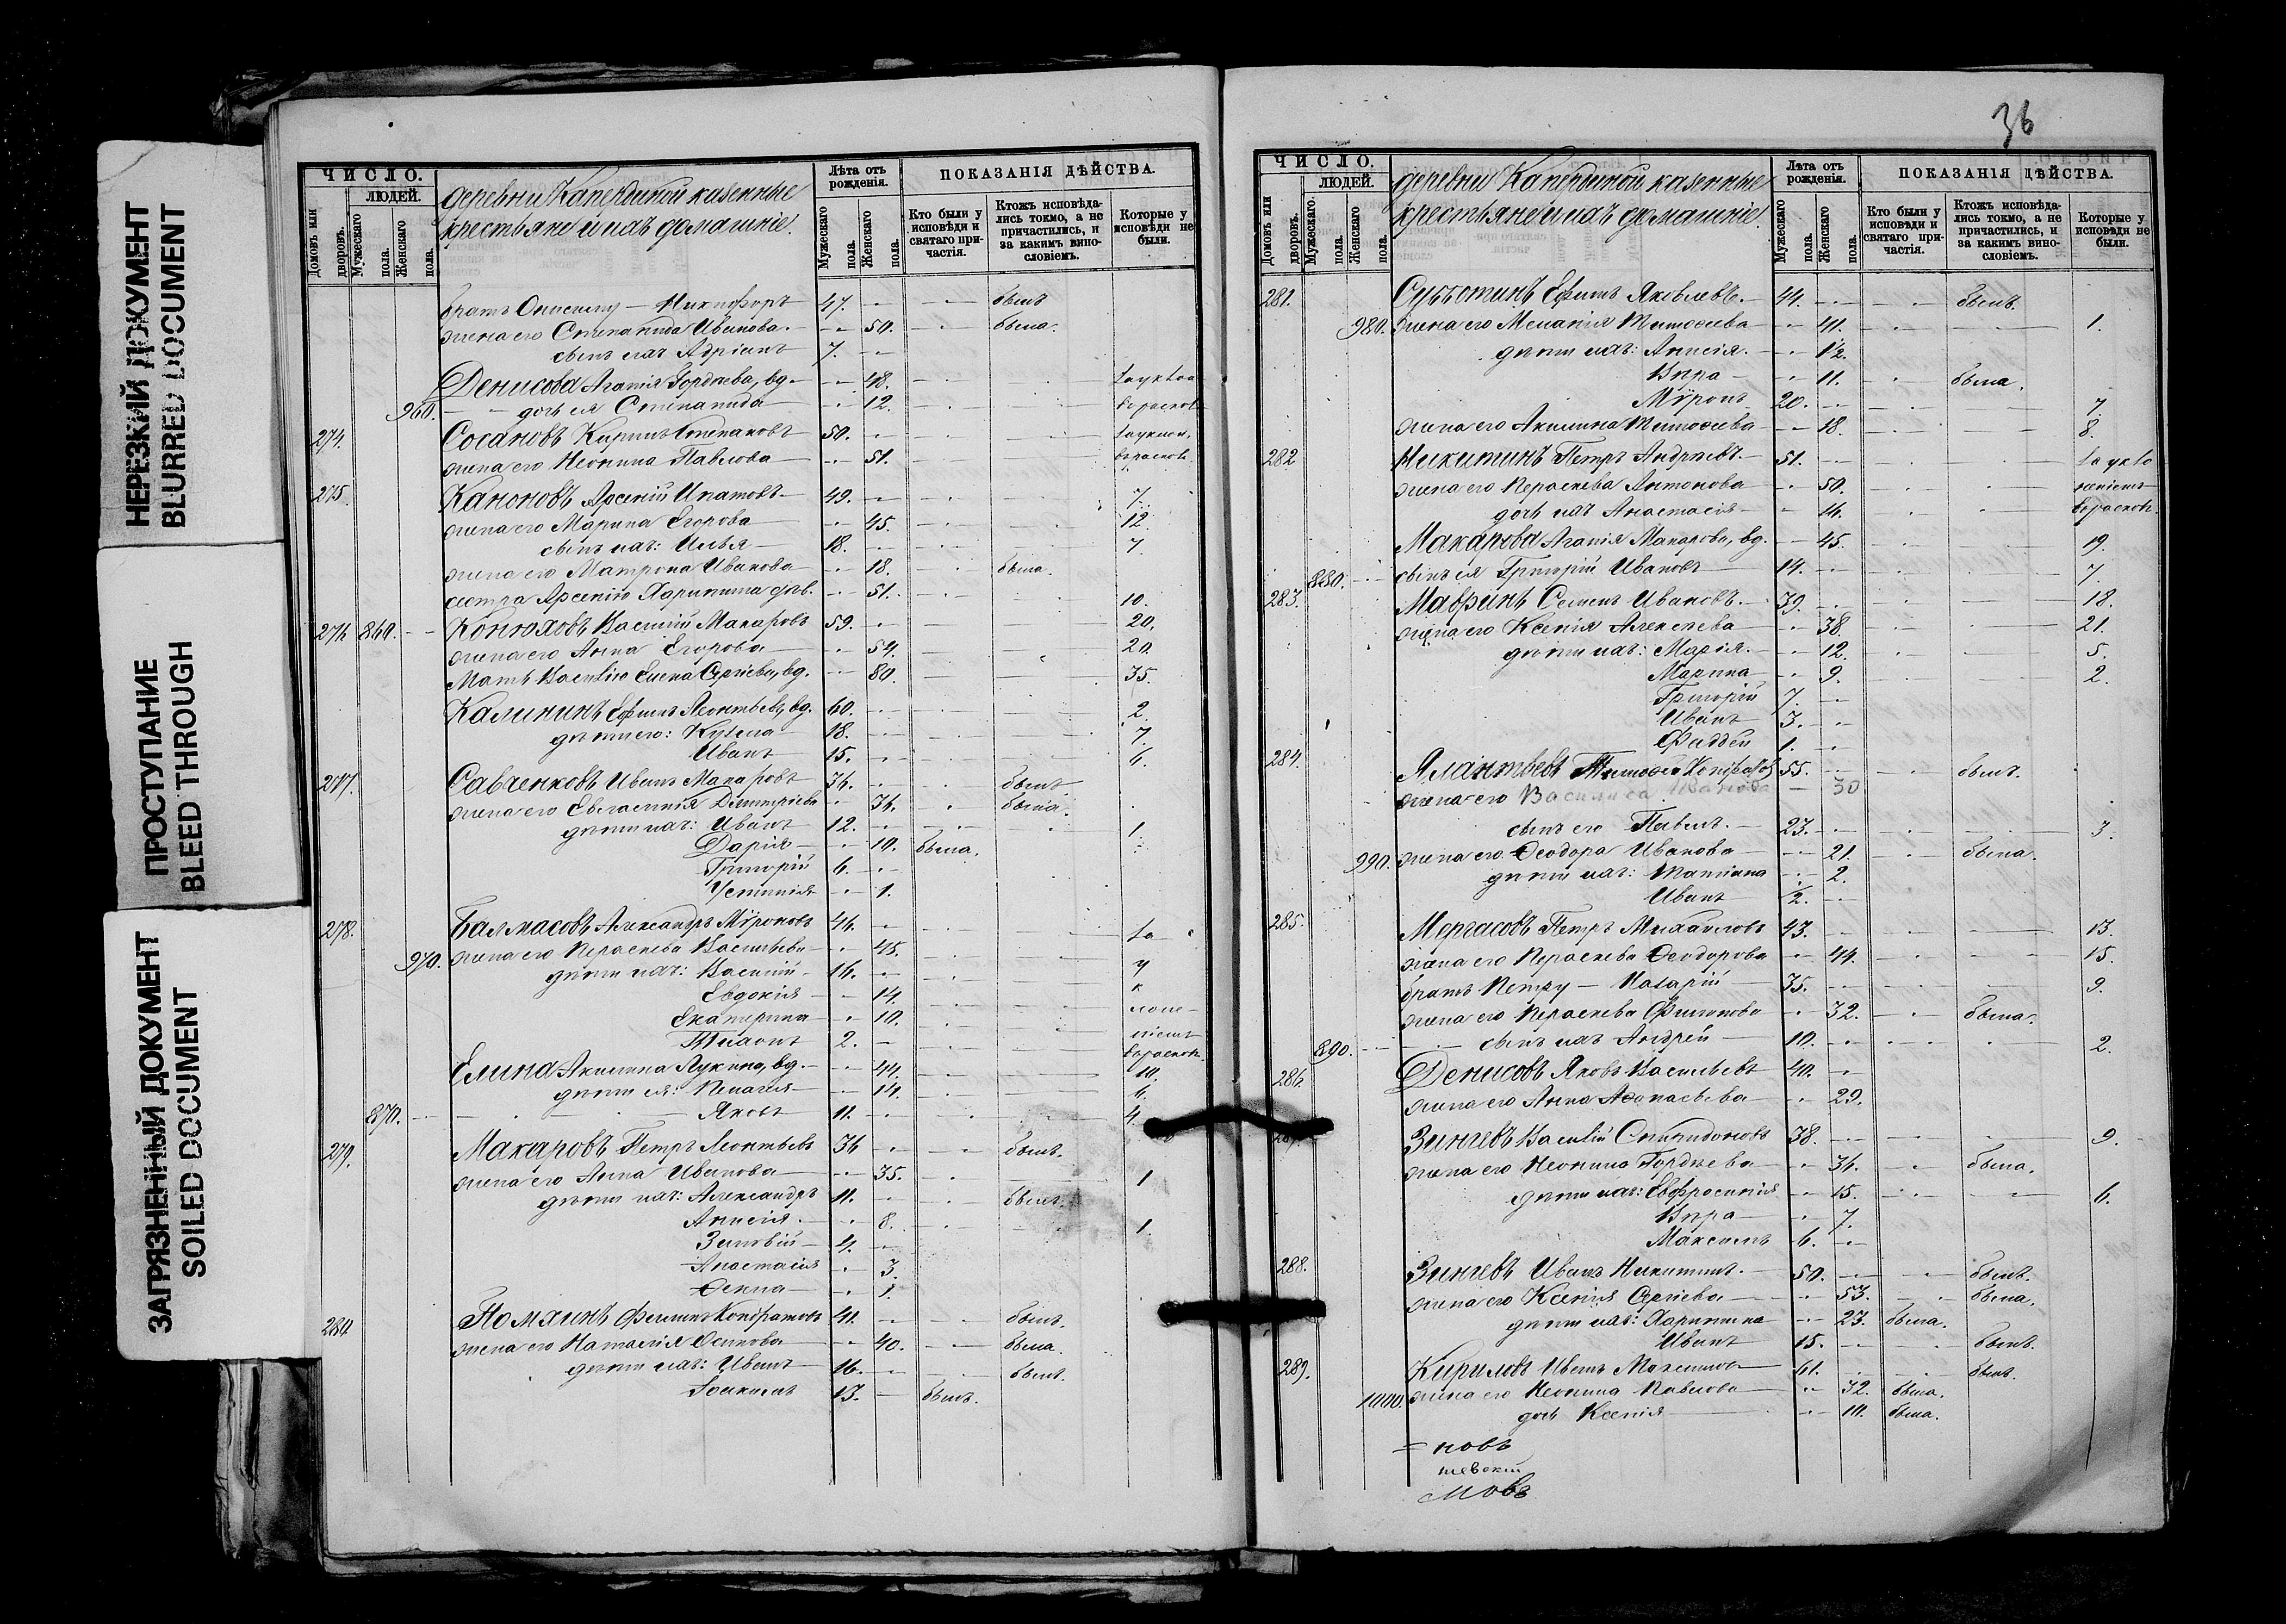 НЕРЕЗКИЙ ДОКУМЕНТ
BLURRED DOCUMENT
ПРОСТУПАНИЕ
BLEED THROUGH
ЗАГРЯЗНЕННЫЙ ДОКУМЕНТ
SOILED DOCUMENT
ЧИСЛО.
ЛЮДЕЙ.
Домовъ или дворовъ.
Мужескаго пола.
Женскаго пола.
деревни казенные
крестьяне и ихъ домашніе.
Лѣта отъ рожденія.
Мужескаго пола.
Женскаго пола.
ПОКАЗАНІЯ ДѢЙСТВА.
Кто были у исповѣди и святаго причастія.
Ктожъ исповѣдались токмо, а не причастились, и за какимъ винословіемъ.
Которые у исповѣди не были.
братъ — Никифоръ 47. былъ
жена его Степанида Иванова 50. была.
сынъ ихъ Адріанъ 7.
Денисова Агапія Гордѣева, вд. 48.
960. дочь ея Степанида 12.
274. Степановъ 50.
жена его Неонила Павлова 51.
275. Каноновъ Арсеній Ипатовъ 49. 7.
жена его Марина Егорова 45. 12.
сынъ ихъ: Илья 18. 7.
жена его Матрона Иванова 18. была.
сестра Арсенію Харитина дѣв. 51. 10.
276 860. Конюховъ Василій Макаровъ 59. 20.
жена его Анна Егорова 54. 20.
Мать Василію Елена Сергіева, вд. 80. 35.
Калининъ Ефимъ Леонтьевъ, вд. 60. 2.
дѣти его: Кузьма 18. 7.
Иванъ 15. 6.
277. Савченковъ Иванъ Макаровъ 36. былъ
жена его Евгенія Димитріева 36. была.
дѣти ихъ: Иванъ 12. 1.
Дарія 10. была.
Григорій 6.
Устинія 1.
278. Балмасовъ Александръ Мѵроновъ 46.
970. жена его Параскева Васильева 45.
дѣти ихъ: Василій 16.
Евдокія 14.
Екатерина 10.
Тихонъ 2.
Елина Акилина Лукина, вд. 44. 10.
дѣти ея: Пелагія 14. 6.
870. Яковъ 11. 4.
279. Макаровъ Петръ Леонтьевъ 36 былъ.
жена его Анна Иванова 35. 1
дѣти ихъ: Александръ 11. былъ.
Анисія 8. 1.
Зиновій 4.
Анастасія 3.
Ѳекла 1.
280 Филиппъ Кондратовъ 41. былъ.
жена его Наталія Осипова 40. была.
дѣти ихъ: Иванъ 16. былъ.
Іоакимъ 13. былъ.
36
ЧИСЛО.
ЛЮДЕЙ.
Домовъ или дворовъ.
Мужескаго пола.
Женскаго пола.
деревни казенные
крестьяне и ихъ домашніе.
Лѣта отъ рожденія.
Мужескаго пола.
Женскаго пола.
ПОКАЗАНІЯ ДѢЙСТВА.
Кто были у исповѣди и святаго причастія.
Ктожъ исповѣдались токмо, а не причастились, и за какимъ винословіемъ.
Которые у исповѣди не были.
281. Субботинъ Ефимъ Яковлевъ 44. былъ.
980. жена его Меланія Тимоѳеева 41. 1.
дѣти ихъ: Анисія 12.
Вѣра 11. была.
Мѵронъ 20. 7.
жена его Акилина Тимоѳеева 18. 8.
282 Никитинъ Петръ Андреевъ 51.
жена его Параскева Антонова 50.
дочь ихъ Анастасія 16.
Макарова Агапія Макарова, вд. 45. 19.
880. сынъ ея Григорій Ивановъ 14. 7.
283. Мавринъ Семенъ Ивановъ 39. 18.
жена его Ксенія Алексѣева 38. 21.
дѣти ихъ: Марія 12. 5.
Марина 9. 2.
Григорій 7.
Иванъ 3.
Фаддей 1.
284. Тимоѳей 55. былъ.
жена его Василиса Иванова 30
сынъ его Павелъ 23. 3.
990. жена его Ѳеодора Иванова 21. была.
дѣти ихъ: Татіана 2.
Иванъ ½.
285. Моргасовъ Петръ Михайловъ 43. 13.
жена его Параскева Ѳеодорова 44. 15.
братъ Петру — Назарій 35. 9.
жена его Параскева Филипова 32. была.
890. сынъ ихъ Андрей 10. 2.
286. Денисовъ Яковъ Васильевъ 40.
жена его Анна Аѳанасьева 29.
287. Зинчевъ Василій Спиридоновъ 38. 9.
жена его Неонила Гордѣева 36. была.
дѣти ихъ: Евфросинія 15. 6.
Вѣра 7.
Максимъ 6.
288. Зинчевъ Иванъ Никитинъ 50. былъ.
жена его Ксенія Сергіева 53. была.
дѣти ихъ: Харитина 23. была.
Иванъ 15. былъ.
289. Кириловъ Иванъ Максимовъ 61. былъ.
1000. жена его Неонила Павлова 32. была.
дочь Ксенія 10. была.
новъ
мовъ